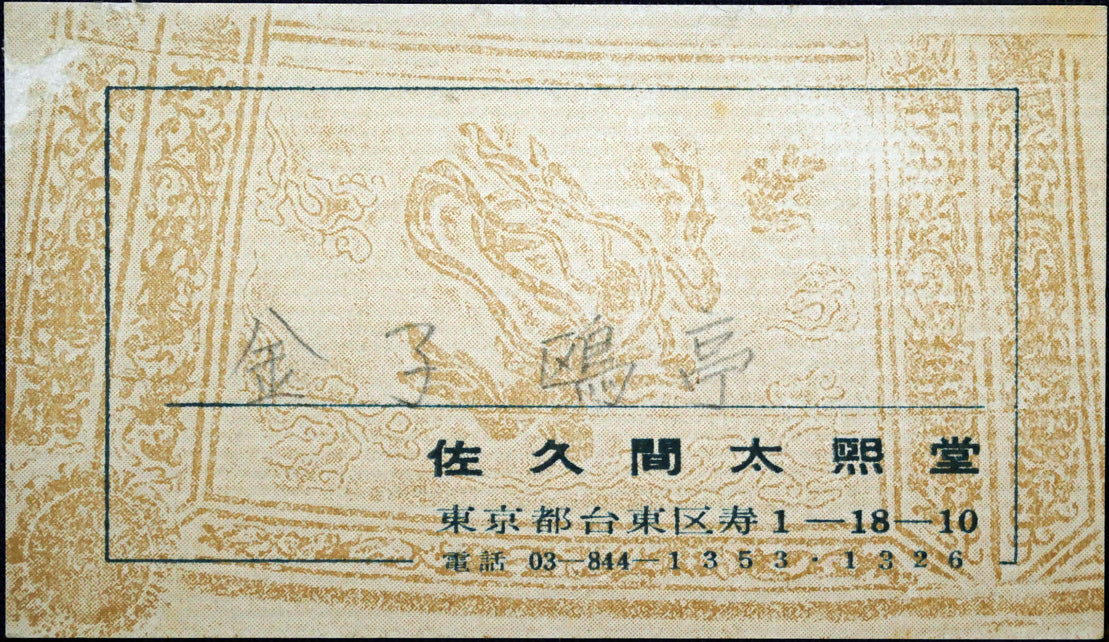 金子鴎亭
佐久間太熙堂
東京都台東区寿1−18−10
電話 03−844−1353・1326